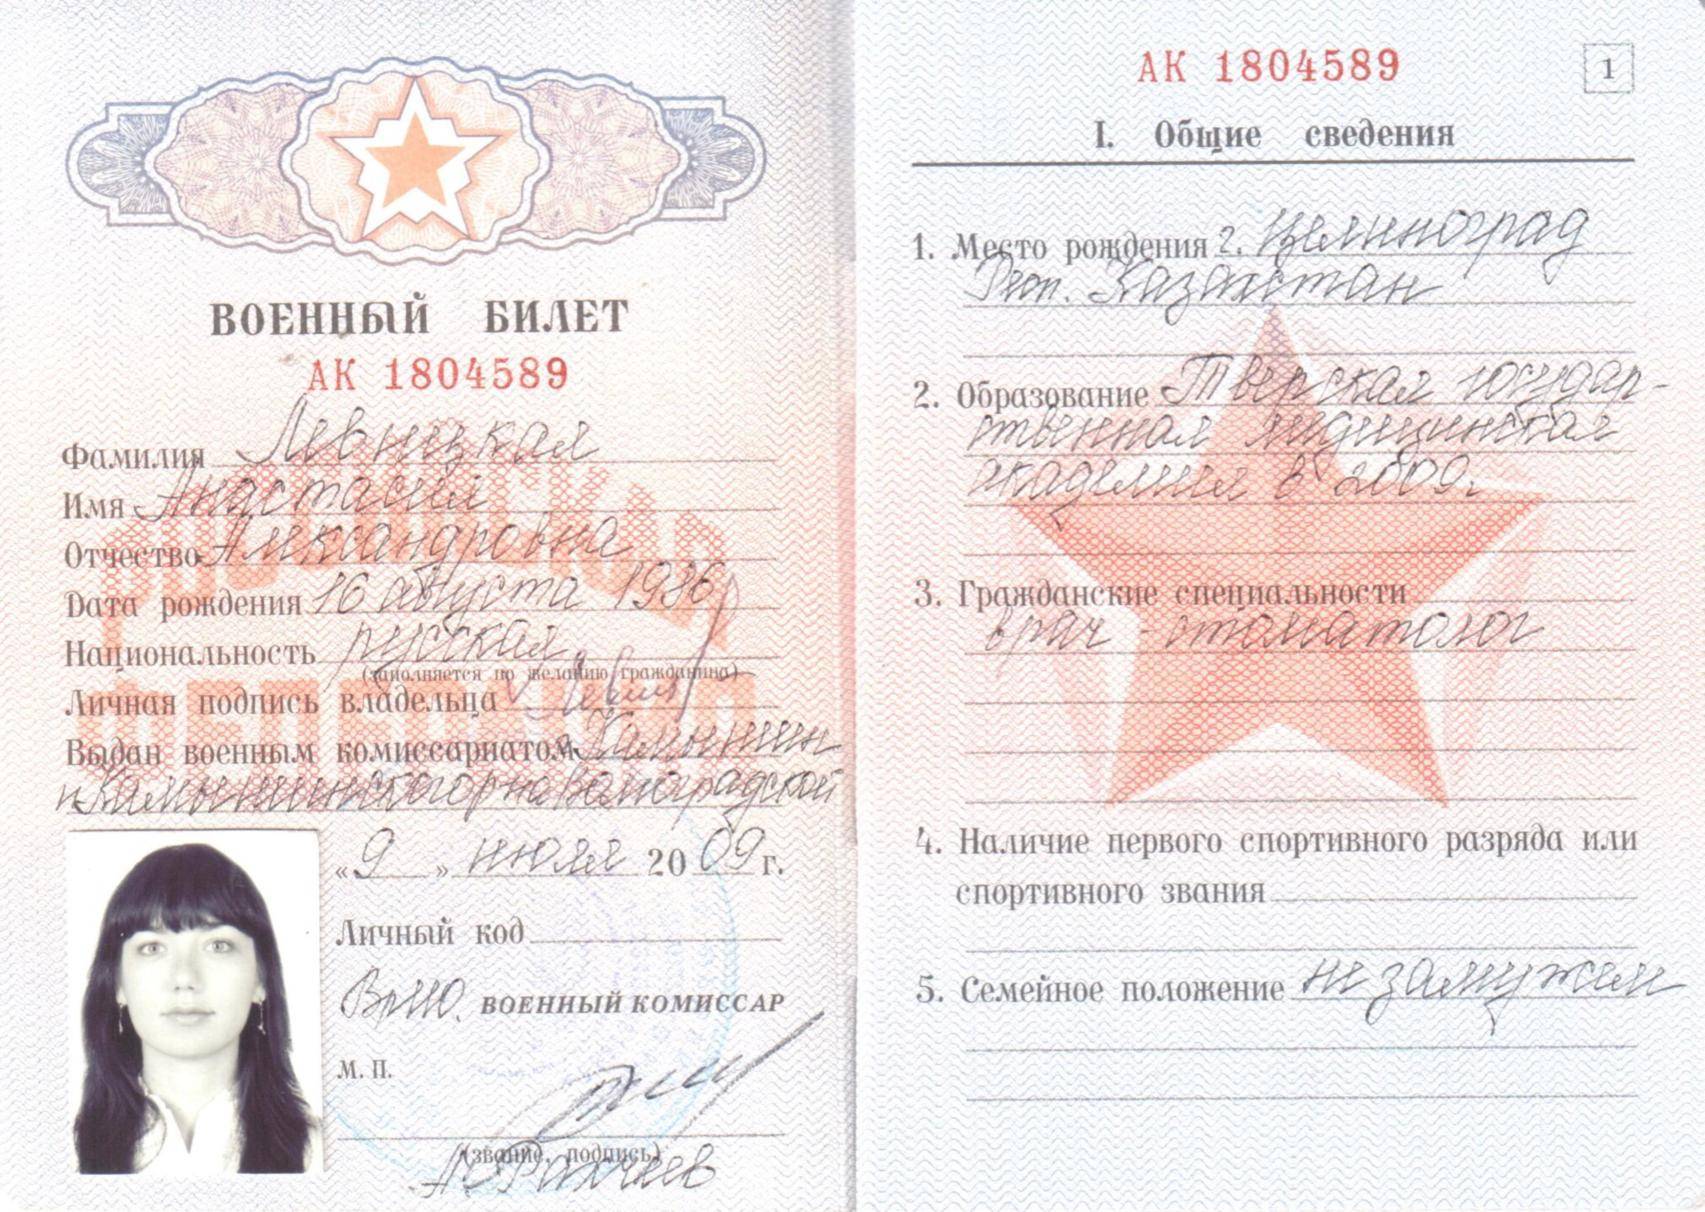 ВОЕННЫЙ БИЛЕТ
АК 1804589
Фамилия Левницкая
Имя Анастасия
Отчество Александровна
Дата рождения 16 августа 1986
Национальность русская
(заполняется по желанию гражданина)
Личная подпись владельца
Выдан военным комиссариатом
Волгоградской
«9» июля 2009 г.
Личный код
ВрИО. ВОЕННЫЙ КОМИССАР
М. П.
(звание, подпись)
АК 1804589
1
I. Общие сведения
1. Место рождения г. Целиноград
Респ. Казахстан
2. Образование Тверская государ-
ственная медицинская
академия в 2009г.
3. Гражданские специальности
врач - стоматолог
4. Наличие первого спортивного разряда или
спортивного звания
5. Семейное положение не замужем